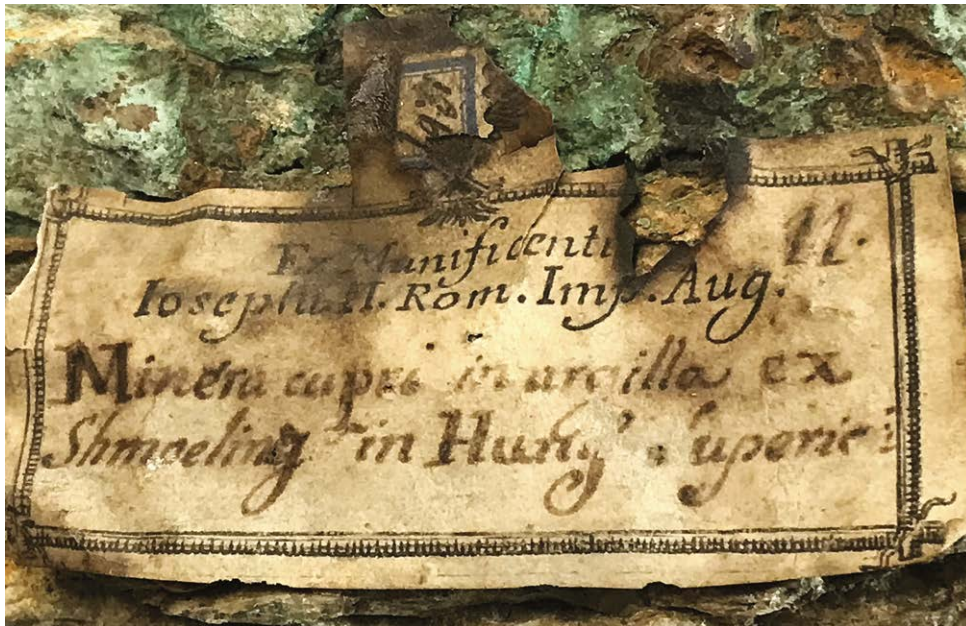 11.
Ex Munificenti
Iosephi II. Rom. Imp. Aug.
Minera cupri in argilla ex
Shmoeling in Hung